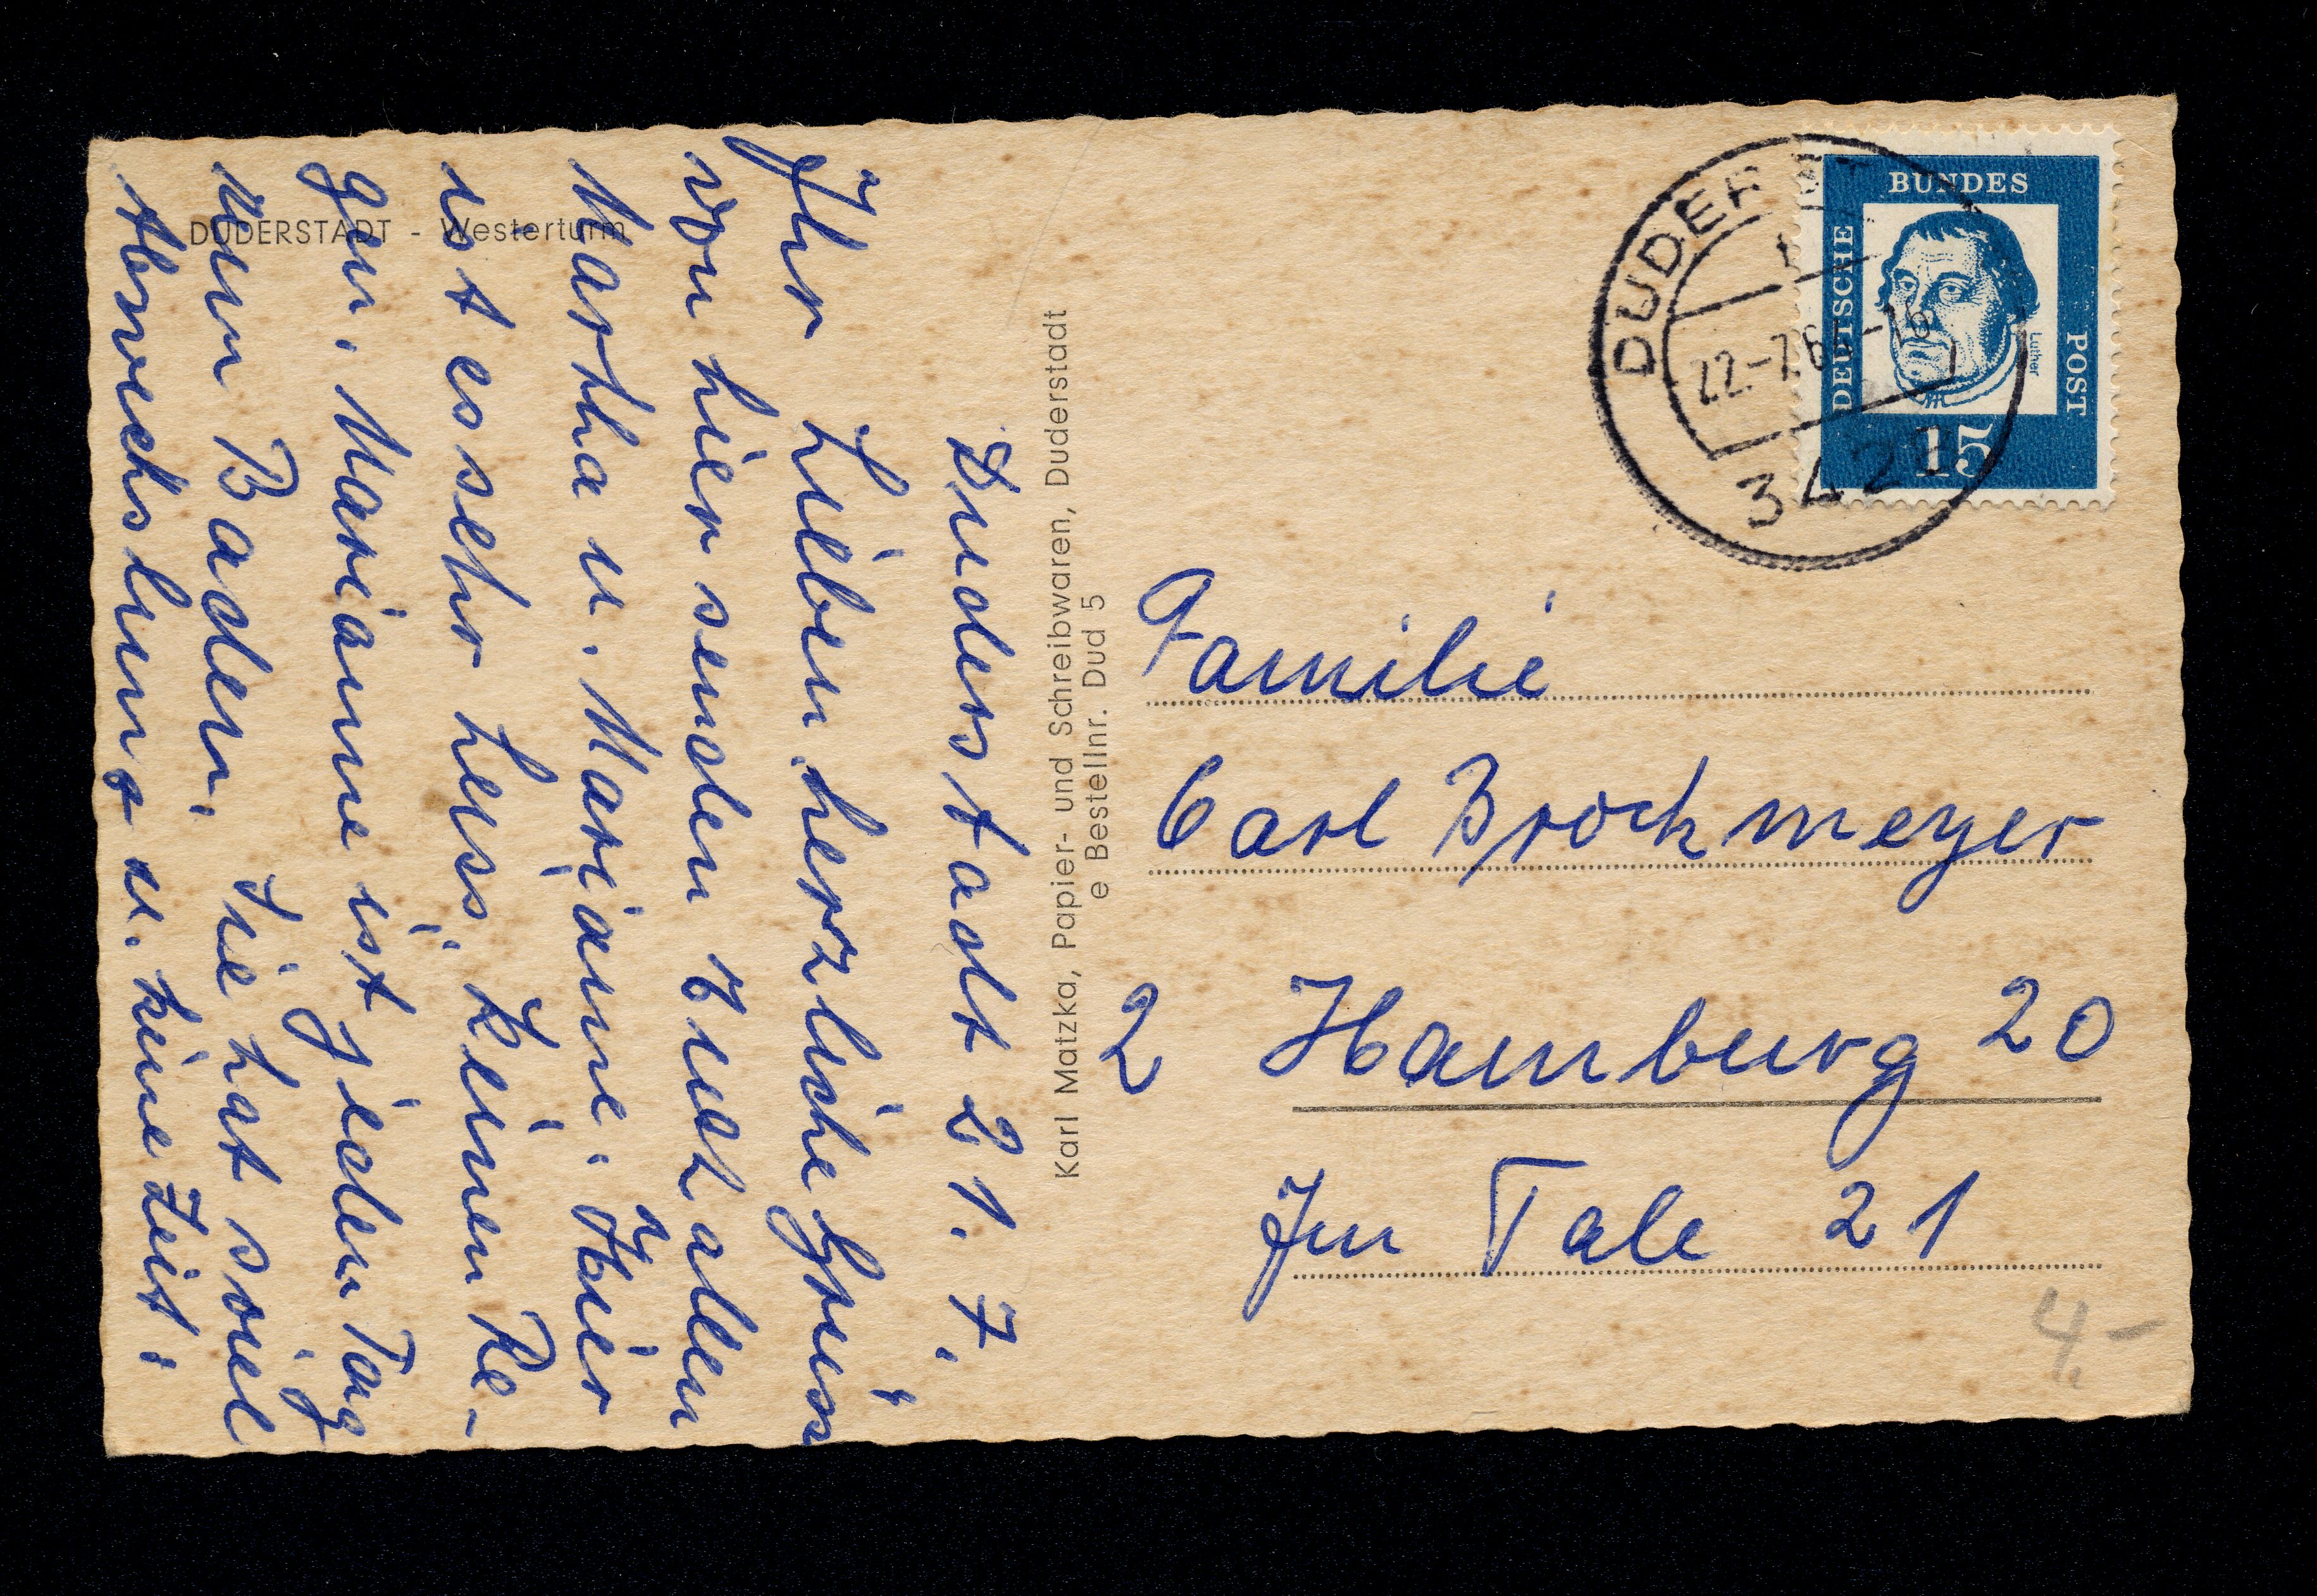 DUDERSTADT - Westerturm
Duderstadt 21. 7.
Ihr Lieben, herzliche Grüss
von hier senden Euch allen
Martha u. Marianne. Hier
ist es sehr heiss, keinen Re-
gen. Marianne ist jeden Tag
zum Baden. Sie hat soviel
Abwechslung u. keine Zeit!
Karl Matzka, Papier- und Schreibwaren, Duderstadt
e Bestellnr. Dud 5
DEUTSCHE BUNDES POST
Luther
15
22.-7.6
342
Familie
Carl Brockmeyer
2 Hamburg 20
Im Tale 21
4.-